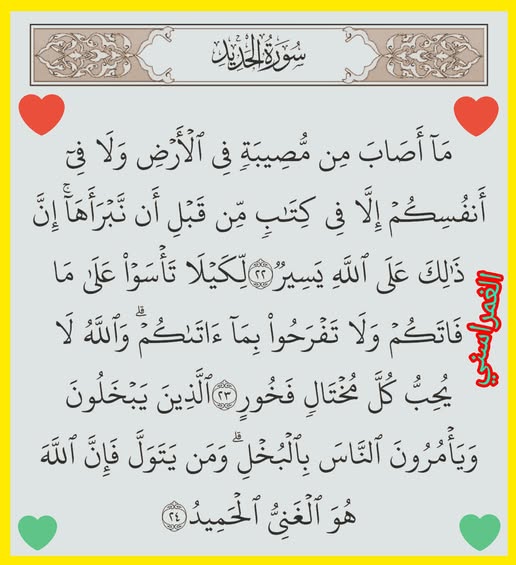 سُورَةُ الحَدِيدِ
مَآ أَصَابَ مِن مُّصِيبَةٖ فِي ٱلۡأَرۡضِ وَلَا فِيٓ
أَنفُسِكُمۡ إِلَّا فِي كِتَٰبٖ مِّن قَبۡلِ أَن نَّبۡرَأَهَآۚ إِنَّ
ذَٰلِكَ عَلَى ٱللَّهِ يَسِيرٞ ٢٢ لِّكَيۡلَا تَأۡسَوۡاْ عَلَىٰ مَا
فَاتَكُمۡ وَلَا تَفۡرَحُواْ بِمَآ ءَاتَىٰكُمۡۗ وَٱللَّهُ لَا
يُحِبُّ كُلَّ مُخۡتَالٖ فَخُورٍ ٢٣ ٱلَّذِينَ يَبۡخَلُونَ
وَيَأۡمُرُونَ ٱلنَّاسَ بِٱلۡبُخۡلِۗ وَمَن يَتَوَلَّ فَإِنَّ ٱللَّهَ
هُوَ ٱلۡغَنِيُّ ٱلۡحَمِيدُ ٢٤
الغمراسني